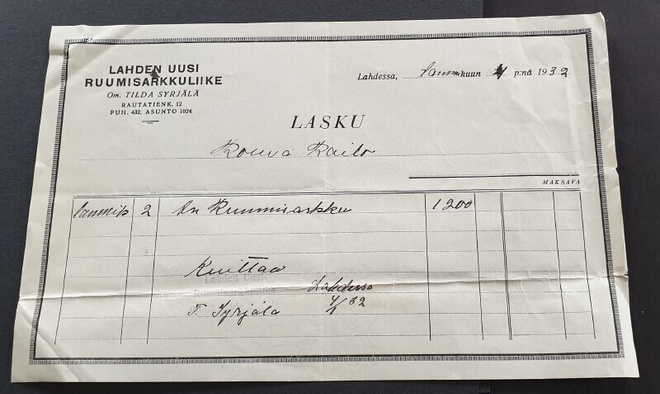 LAHDEN UUSI
RUUMISARKKULIIKE
Om. TILDA SYRJÄLÄ
RAUTATIENK. 12
PUH. 432, ASUNTO 1024
Lahdessa, tammikuun 4 p:nä 1932
LASKU
Rouva Railo
MAKSAVA
tammik 2 An Ruumisarkku 1200
Kuittaa
Lahdessa
T. Syrjälä 4/1 32